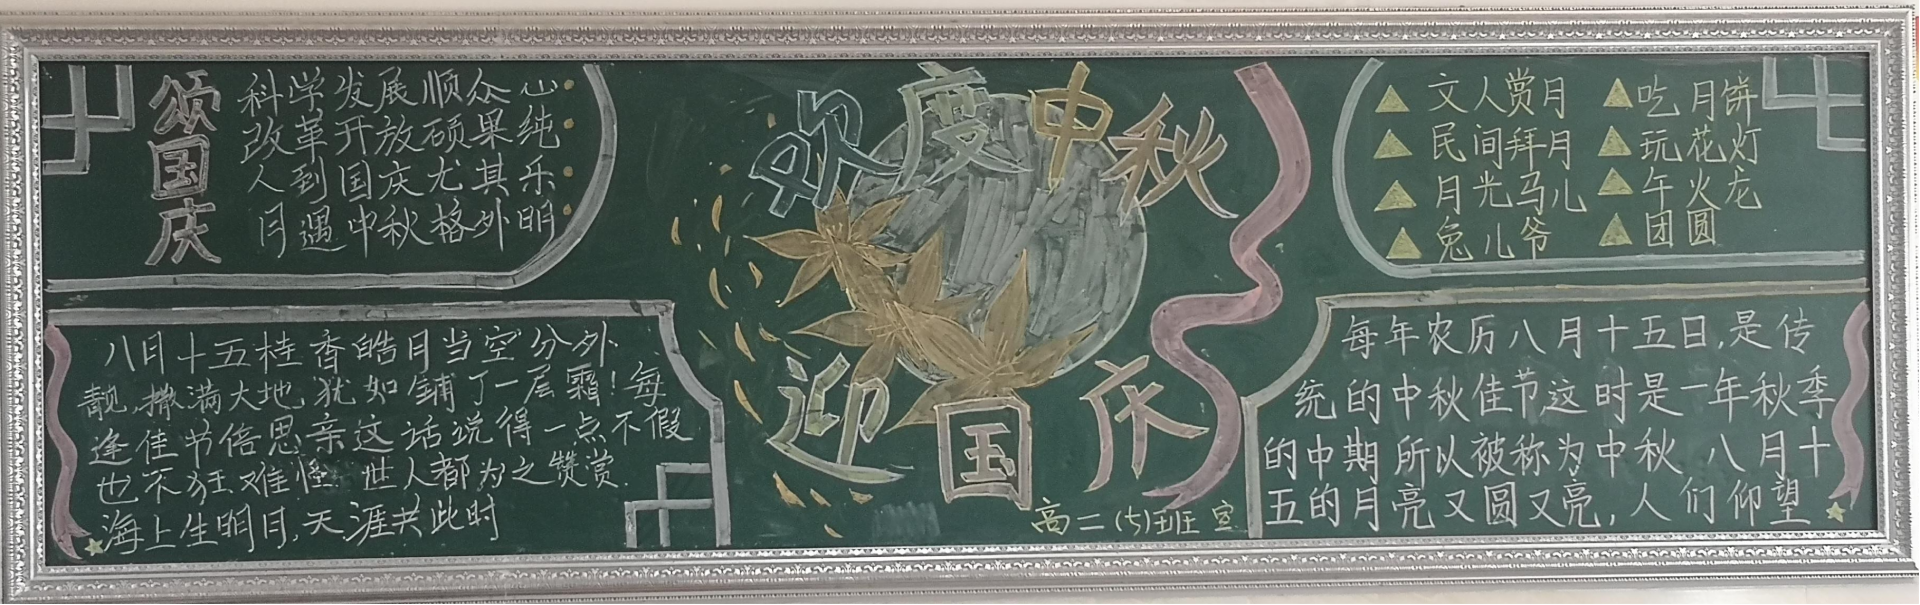 颂国庆
科学发展顺众心
改革开放硕果纯
人到国庆尤其乐
月遇中秋格外明
八月十五桂香皓月当空分外
靓,撒满大地犹如铺了一层霜!每
逢佳节倍思亲这话说得一点不假
也不狂难怪世人都为之赞赏.
海上生明月,天涯共此时
欢度中秋
迎国庆
高二(5)班宣
文人赏月 吃月饼
民间拜月 玩花灯
月光马儿 午火龙
兔儿爷 团圆
每年农历八月十五日,是传
统的中秋佳节这时是一年秋季
的中期所以被称为中秋八月十
五的月亮又圆又亮,人们仰望